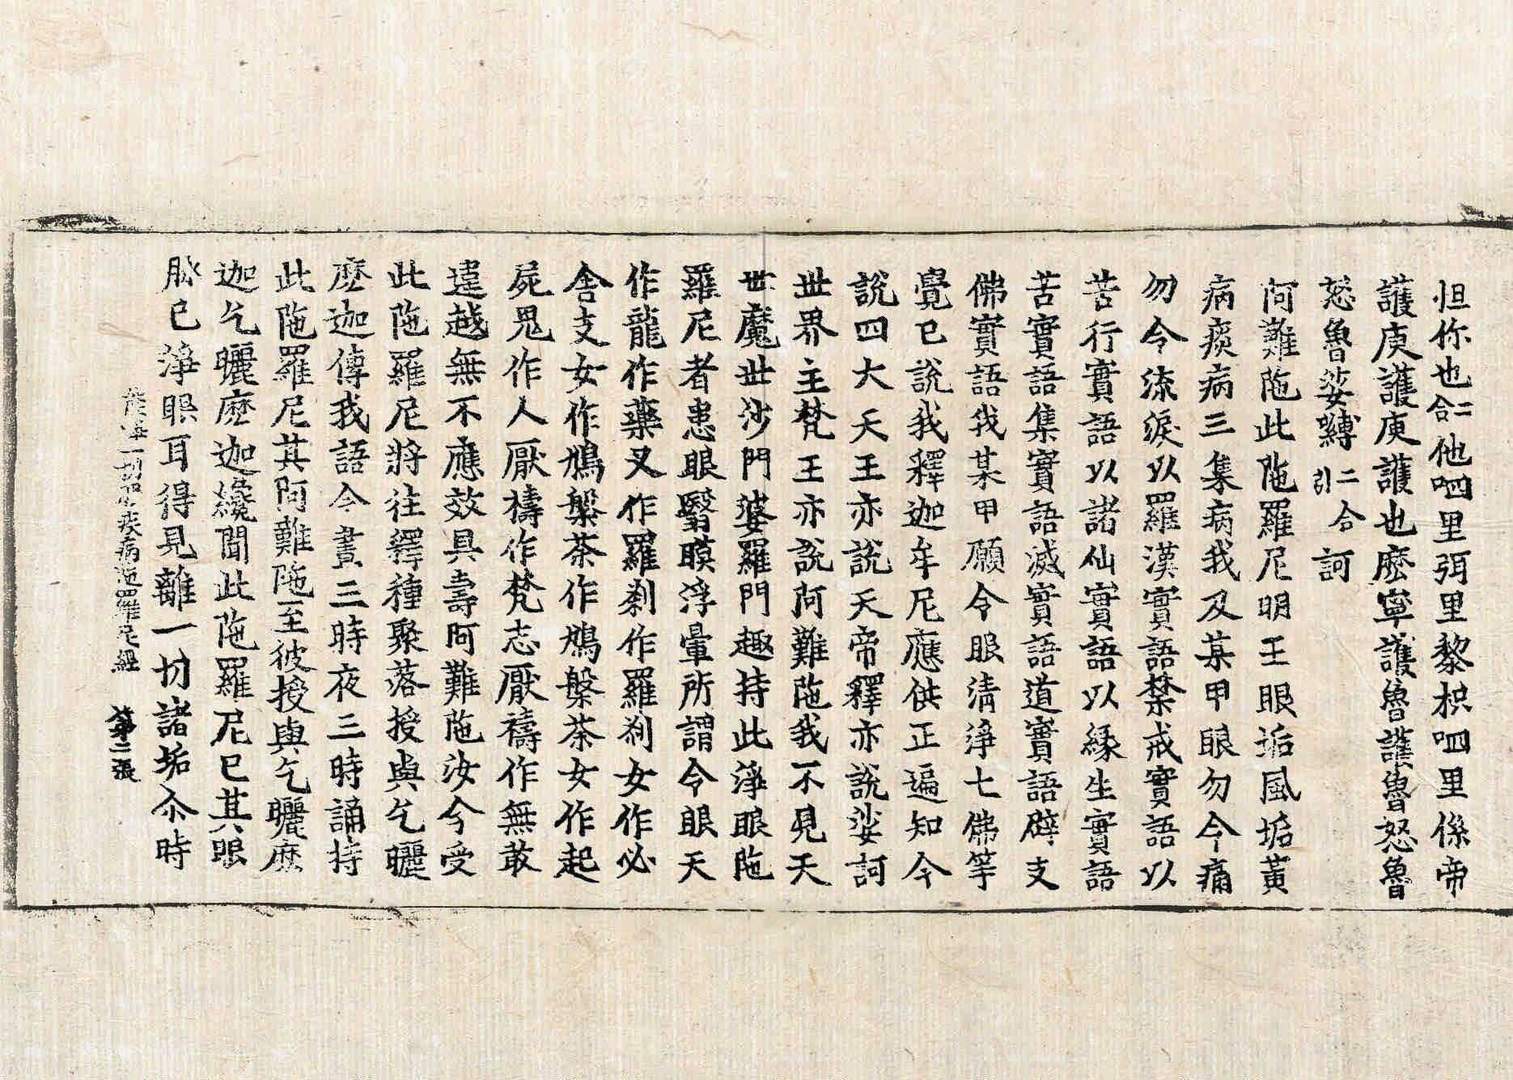 怛你也二合他呬里弭里黎枳呬里係帝
護庾護庾護也麽寧護魯護魯怒魯
怒魯娑嚩二合引訶
阿難陁此陁羅尼明王眼垢風垢黄
病痰病三集病我及某甲眼勿令痛
勿令流淚以羅漢實語禁戒實語以
苦行實語以諸仙實語以緣生實語
苦實語集實語滅實語道實語辟支
佛實語我某甲願令眼清淨七佛等
覺已說我釋迦牟尼應供正遍知今
說四大天王亦說天帝釋亦說娑訶
世界主梵王亦說阿難陁我不見天
世魔世沙門婆羅門趣持此淨眼陁
羅尼者患眼翳膜浮暈所謂令眼天
作龍作藥叉作羅剎作羅剎女作必
舍支女作鳩槃茶作鳩槃茶女作起
屍鬼作人厭禱作梵志厭禱作無敢
違越無不應效具壽阿難陁汝今受
此陁羅尼將往釋種聚落授與乞曬
麽迦傳我語令晝三時夜三時誦持
此陁羅尼其阿難陁至彼授與乞曬麽
迦乞曬麽迦纔聞此陁羅尼已其眼
脉已淨眼耳得見離一切諸垢尒時
能淨一切眼疾病陁羅尼經 第二張